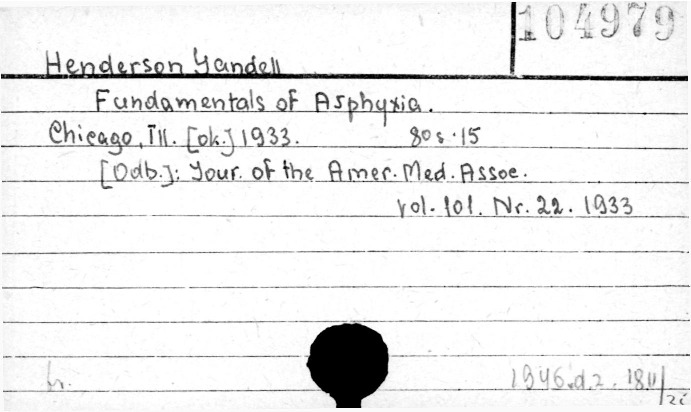 104979
Henderson Yandell
Fundamentals of Asphyxia.
Chicago, Ill. [ok.] 1933. 8o s. 15
[Odb.]: Jour. of the Amer. Med. Assoc.
vol. 101. Nr. 22. 1933
br. 1946.d.2.